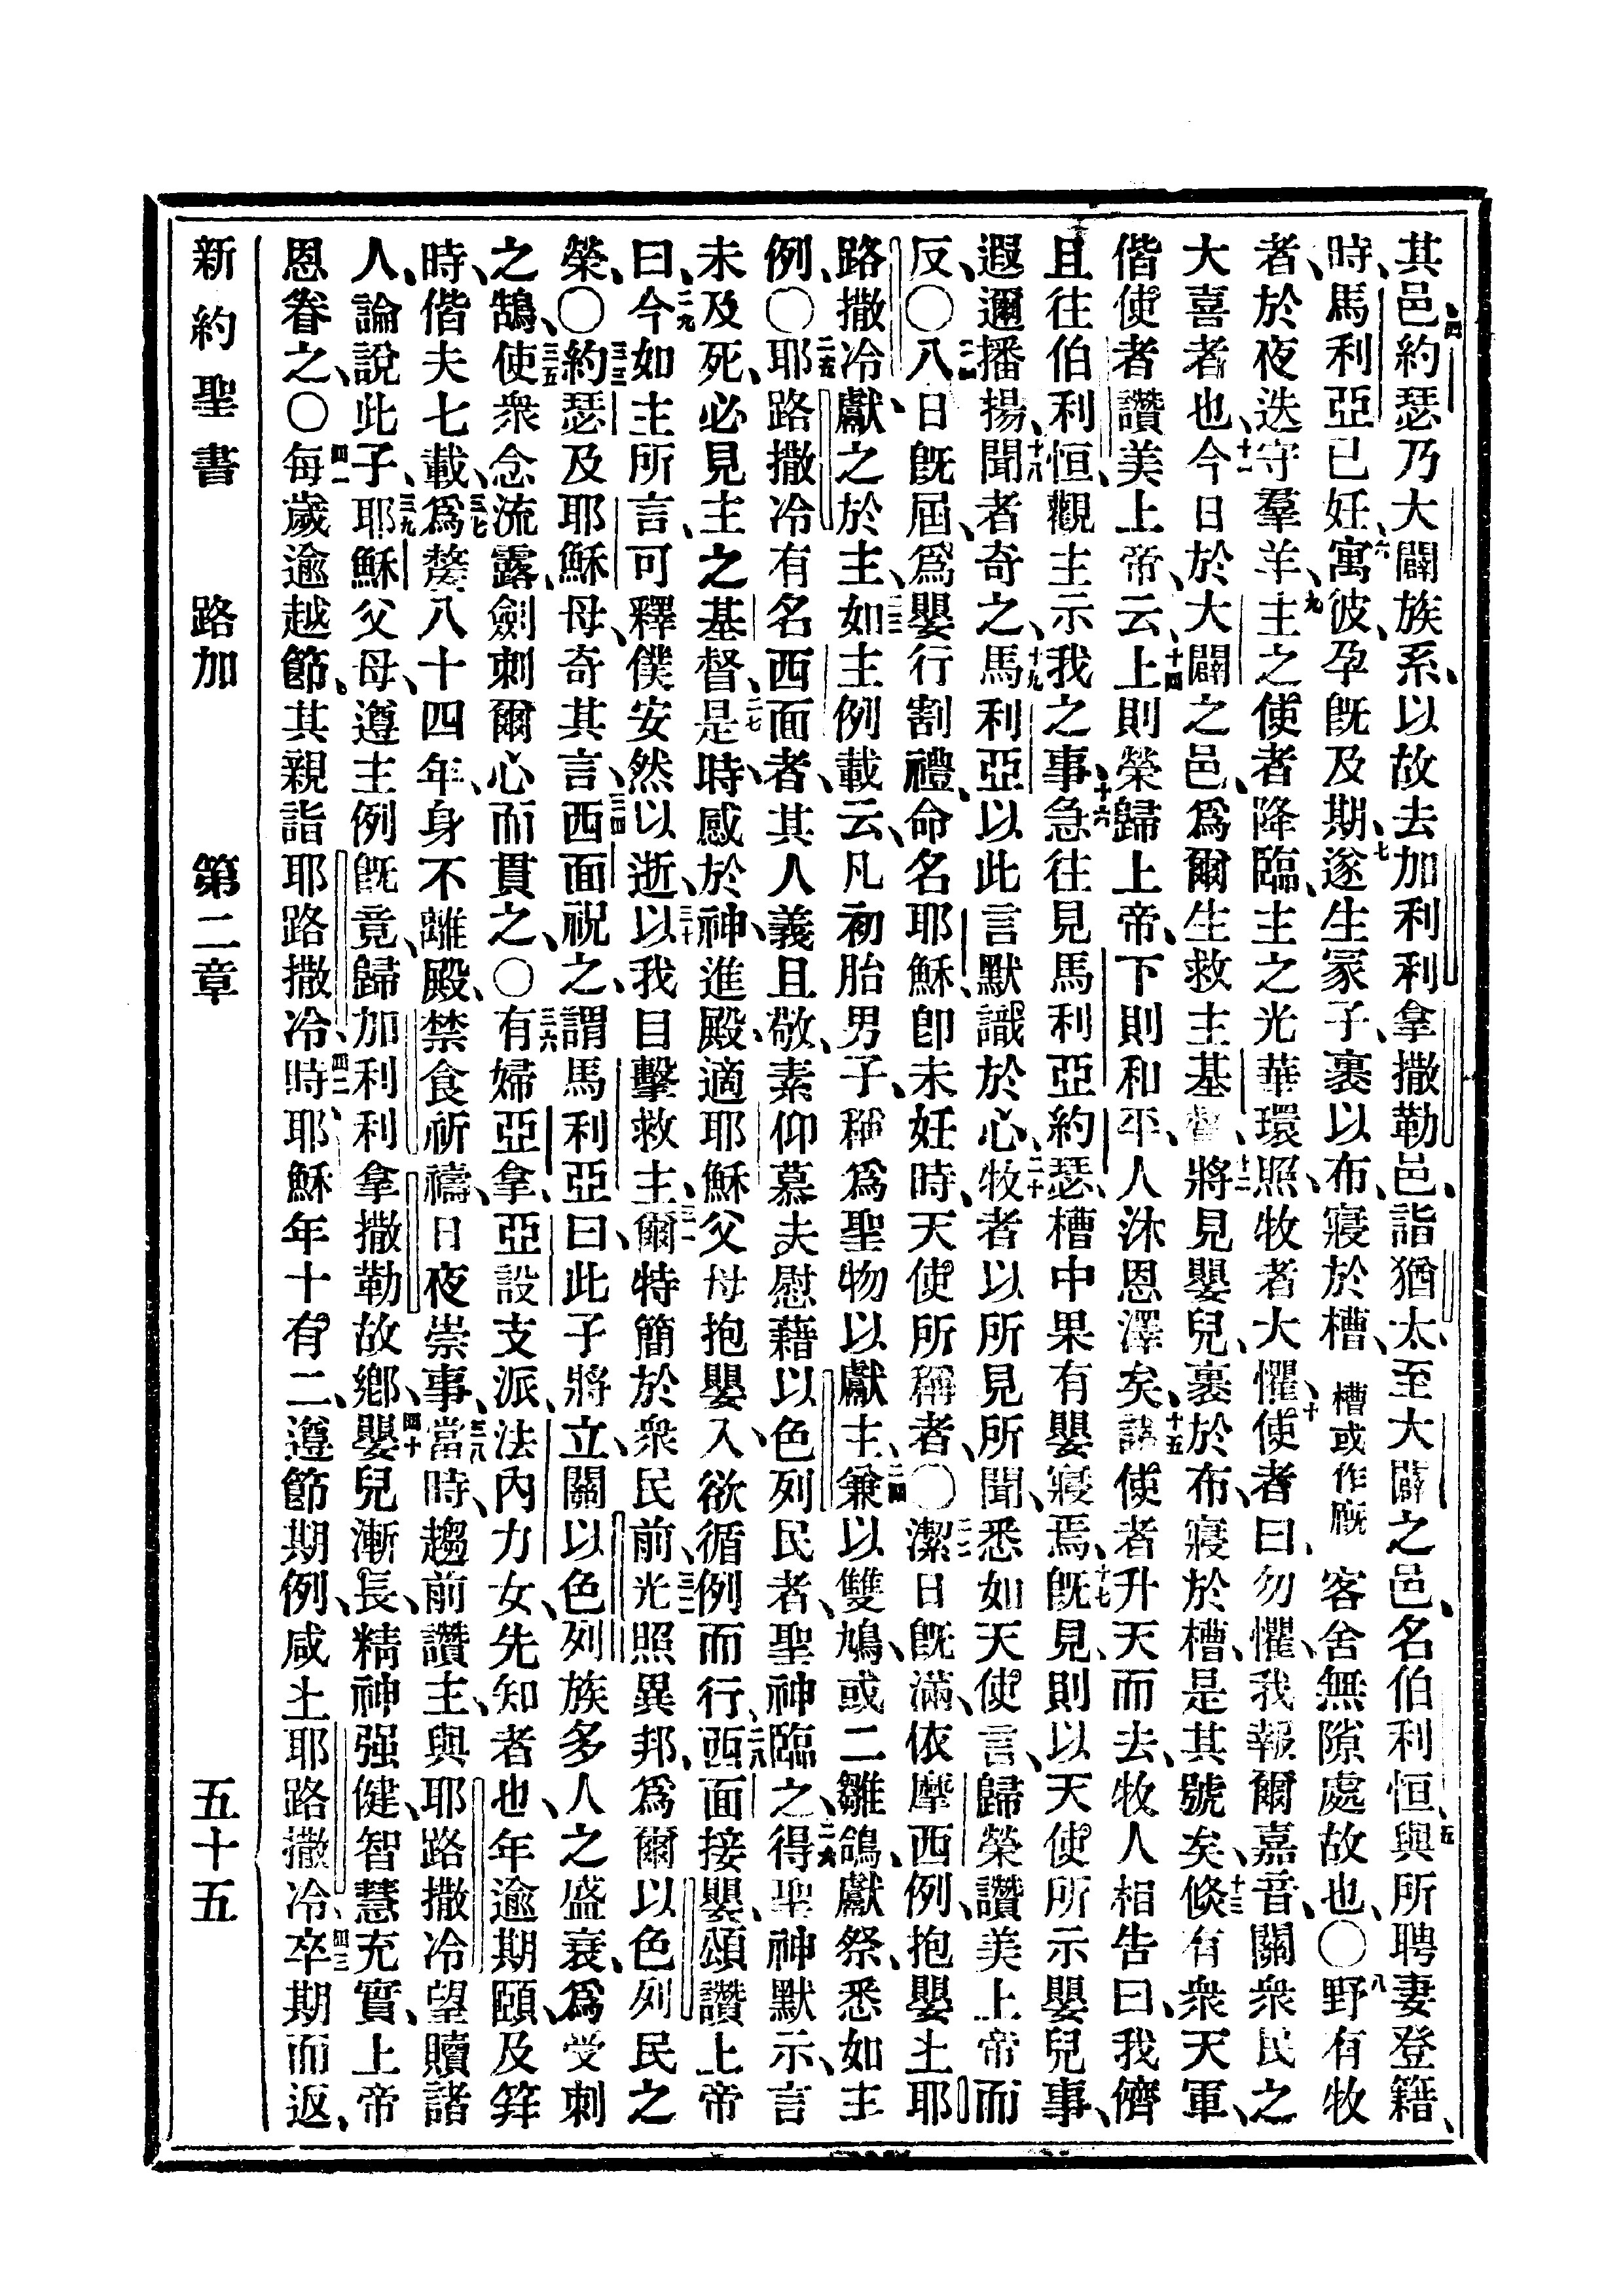 其邑、四約瑟乃大闢族系、以故去加利利拿撒勒邑、詣猶太、至大闢之邑、名伯利恒、五與所聘妻登籍、
時、馬利亞已妊、六寓彼、孕既及期、七遂生冢子、裹以布、寢於槽、槽或作廐客舍無隙處故也、〇八野有牧
者、於夜迭守羣羊、九主之使者降臨、主之光華環照、牧者大懼、十使者曰、勿懼、我報爾嘉音、關衆民之
大喜者也、十一今日於大闢之邑、爲爾生救主基督、十二將見嬰兒、裹於布、寢於槽、是其號矣、十三倐有衆天軍、
偕使者讚美上帝、云、十四上則榮歸上帝、下則和平、人沐恩澤矣、十五諸使者升天而去、牧人相告曰、我儕
且往伯利恒、觀主示我之事、十六急往見馬利亞約瑟、槽中果有嬰寢焉、十七既見、則以天使所示嬰兒事、
遐邇播揚、十八聞者奇之、十九馬利亞以此言默識於心、二十牧者以所見所聞、悉如天使言、歸榮讚美上帝而
反、〇二一八日既屆、爲嬰行割禮、命名耶穌、卽未妊時、天使所稱者、〇二二潔日既滿、依摩西例、抱嬰上耶
路撒冷、獻之於主、二三如主例載云、凡初胎男子、稱爲聖物以獻主、二四兼以雙鳩、或二雛鴿、獻祭、悉如主
例、〇二五耶路撒冷有名西面者、其人義且敬、素仰慕夫慰藉以色列民者、聖神臨之、二六得聖神默示、言
未及死、必見主之基督、二七是時、感於神、進殿、適耶穌父母抱嬰入、欲循例而行、二八西面接嬰、頌讚上帝
曰、二九今如主所言、可釋僕安然以逝、三十以我目擊救主、三一爾特簡於衆民前、三二光照異邦、爲爾以色列民之
榮、〇三三約瑟及耶穌母、奇其言、三四西面祝之、謂馬利亞曰、此子將立、關以色列族多人之盛衰、爲受刺
之鵠、三五使衆念流露、劍刺爾心而貫之、〇三六有婦亞拿、亞設支派、法內力女、先知者也、年逾期頤、及笄
時、偕夫七載、三七爲嫠八十四年、身不離殿、禁食祈禱、日夜崇事、三八當時、趨前讚主、與耶路撒冷望贖諸
人、論說此子、三九耶穌父母、遵主例既竟、歸加利利拿撒勒故鄉、四十嬰兒漸長、精神强健、智慧充實、上帝
恩眷之、〇四一每歲逾越節、其親詣耶路撒冷、四二時耶穌年十有二、遵節期例、咸上耶路撒冷、四三卒期而返、
新約聖書　路加　第二章　五十五